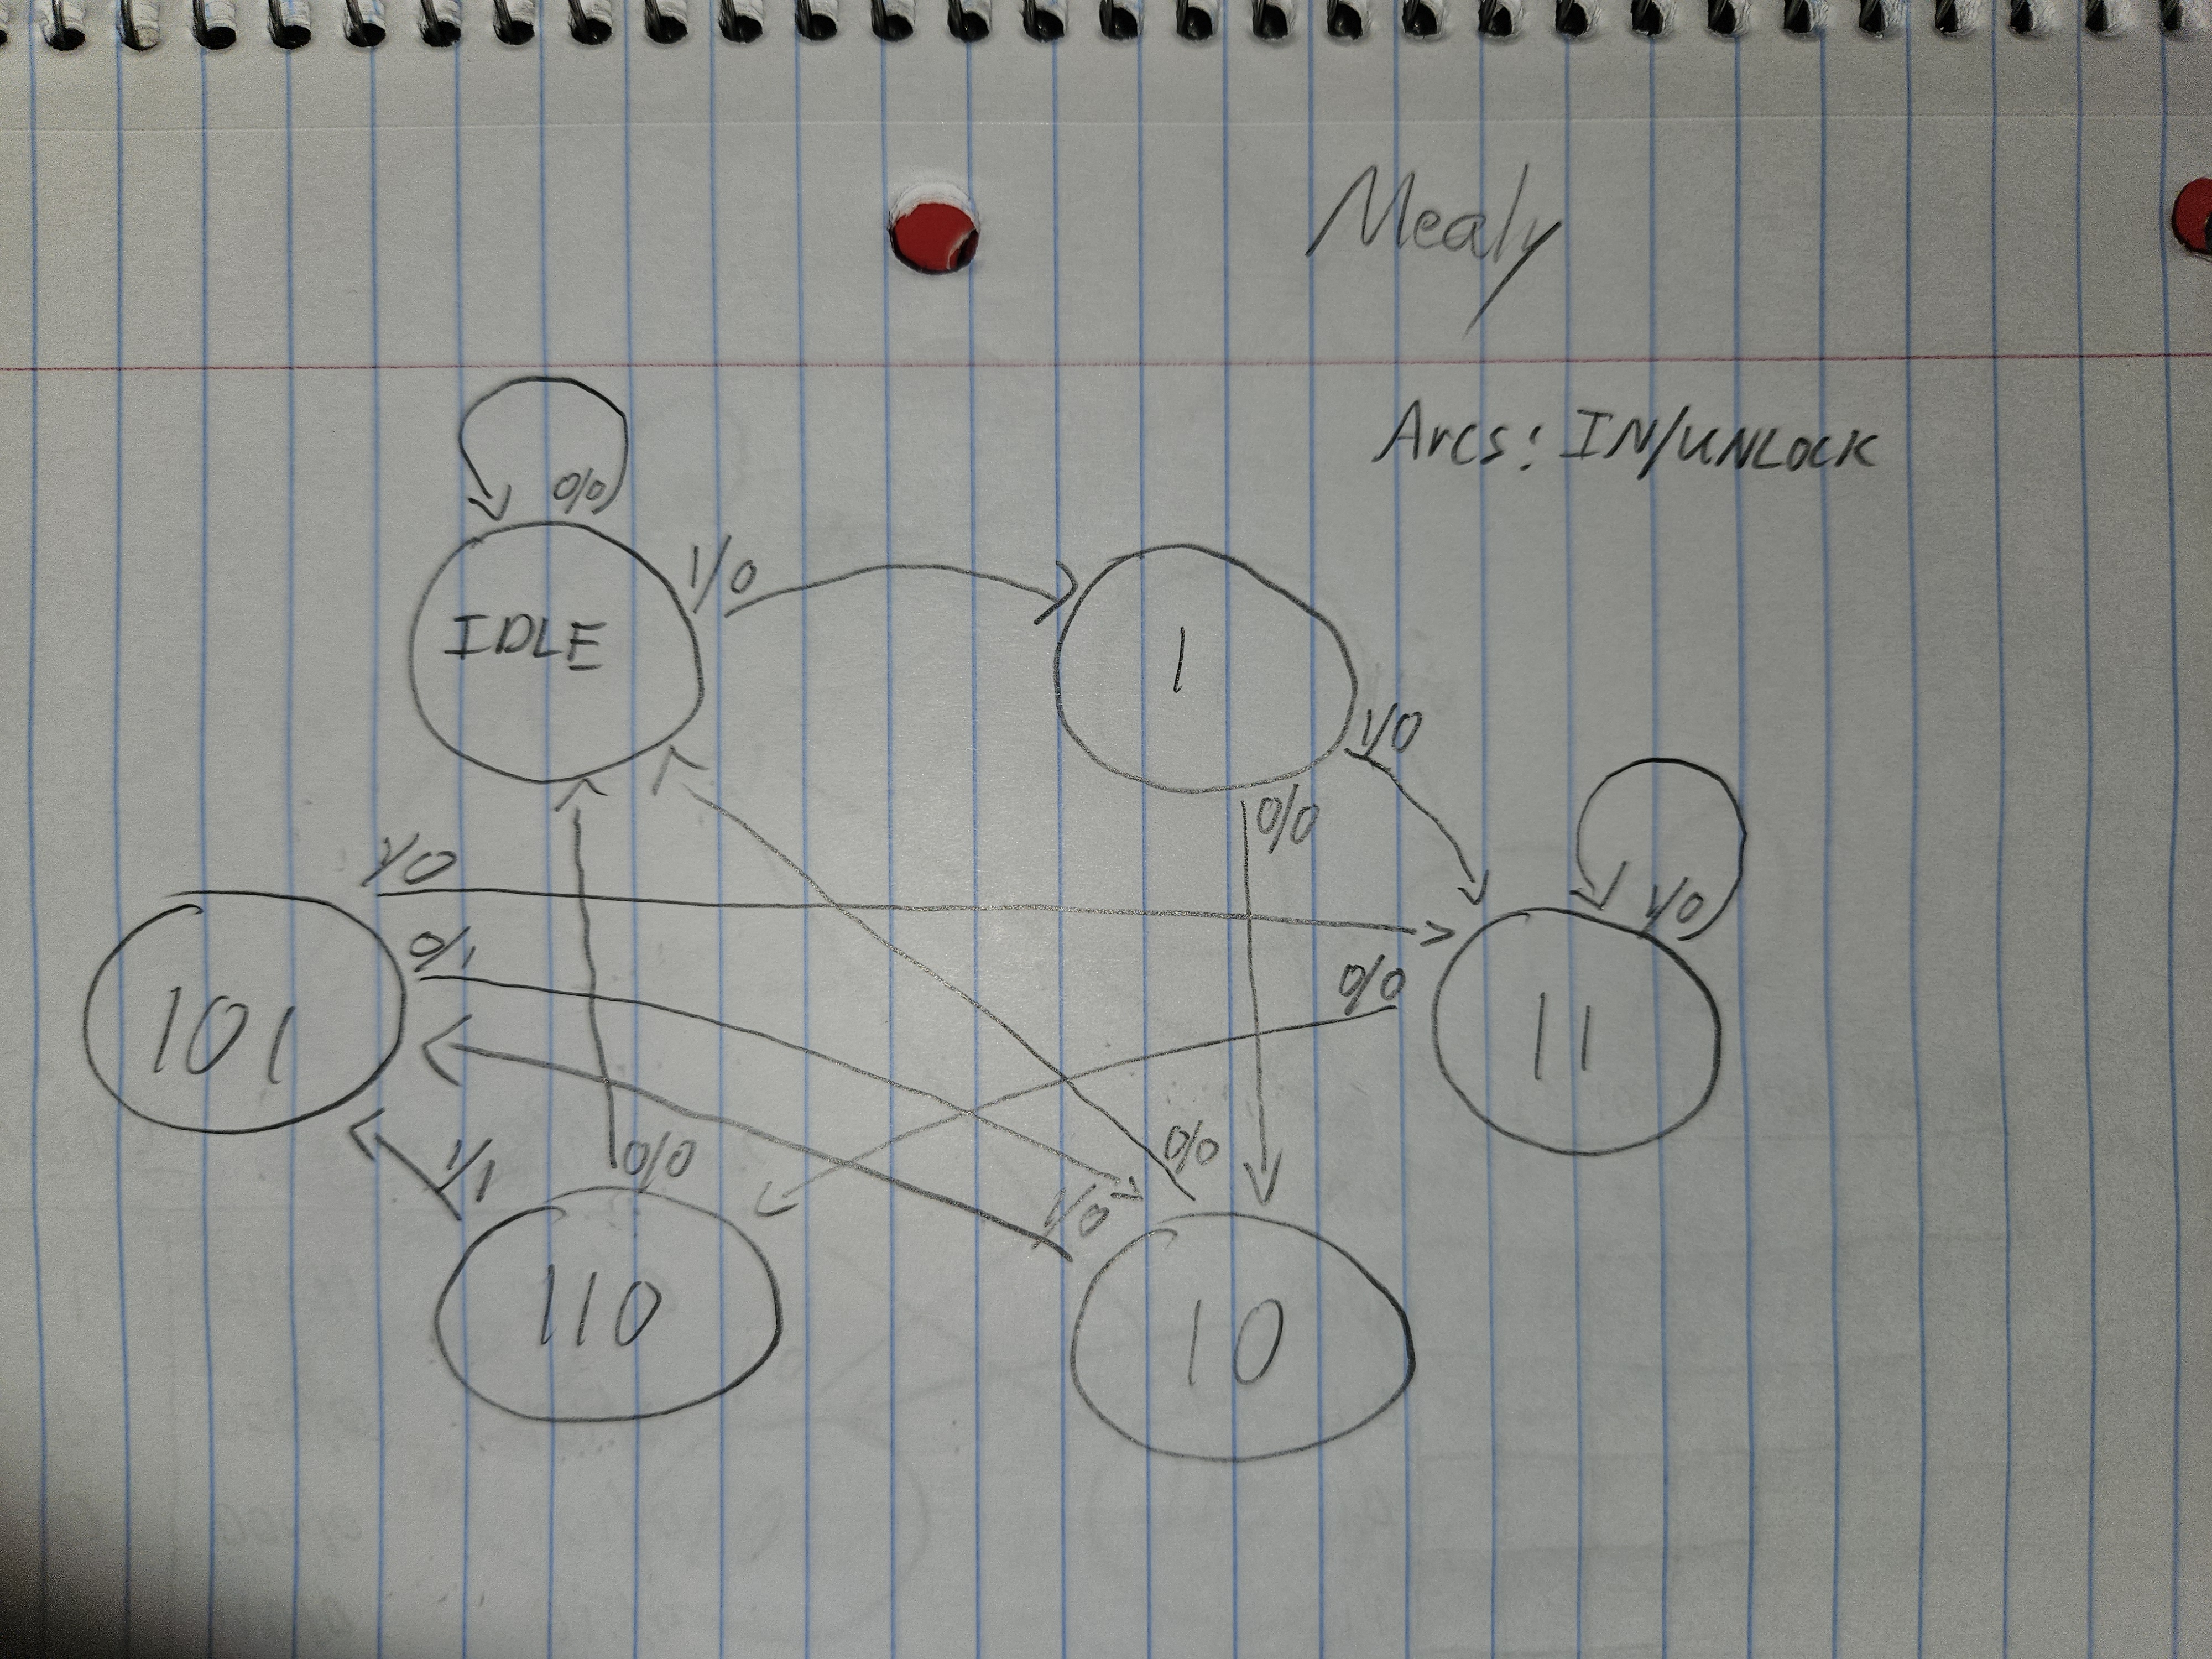 Mealy
Arcs: IN/UNLOCK
0/0
IDLE
1/0
1
1/0
0/0
1/0
1/0
0/1
0/0
101
11
1/1
0/0
1/0
0/0
110
10